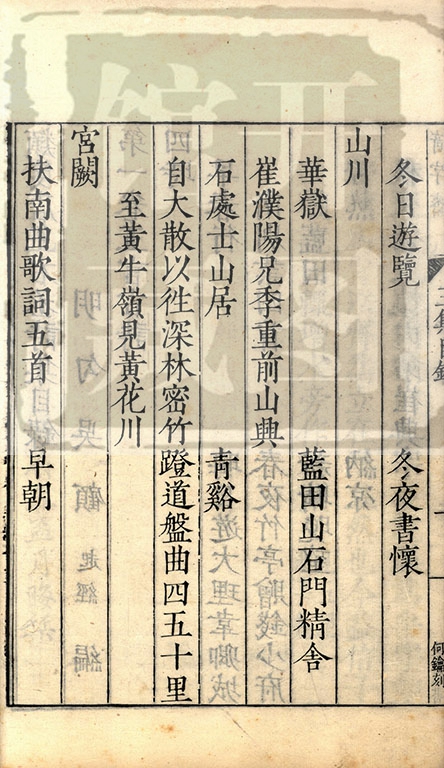 冬日遊覽　冬夜書懷
山川
華嶽　藍田山石門精舍
崔濮陽兄季重前山興
石處士山居　青谿
自大散以徃深林密竹蹬道盤曲四五十里
至黃牛嶺見黃花川
宮闕
扶南曲歌詞五首　早朝
何鑰刻